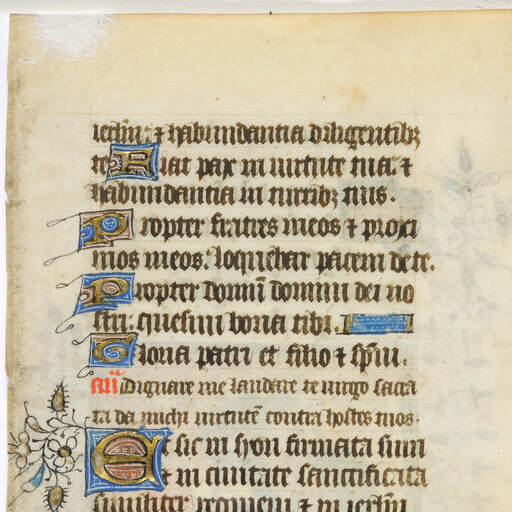 ierłm: ⁊ habundantia diligentibꝫ
te. Fiat pax in uirtute tua: ⁊
habundantia in turribꝫ tuis.
Propter fratres meos ⁊ proxi
mos meos: loquebar pacem de te.
Propter domū domini dei no
stri: quesiui bona tibi.
Gloria patri et filio ⁊ sp̄ui.
an̄ Dignare me laudare te uirgo sacra
ta da michi uirtutē contra hostes tuos.
Et sic in syon firmata sum
⁊ in ciuitate sanctificata
similiter requieui ⁊ in ierłm